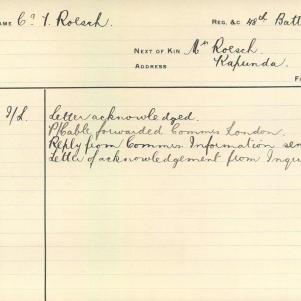 NAME C. F. Roesch. REG. &C 48th Batt
NEXT OF KIN Mr Roesch.
ADDRESS Kapunda.
I/L. Letter acknowledged.
P/Cable forwarded Commis London.
Reply from Commis. Information sen
Letter of acknowledgement from Inqui